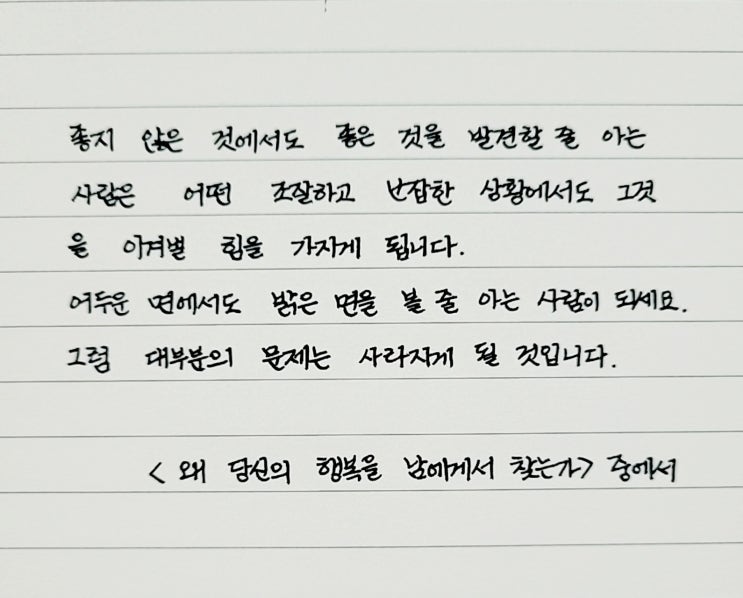 좋지 않은 것에서도 좋은 것을 발견할 줄 아는
사람은 어떤 조잘하고 난잡한 상황에서도 그것
을 이겨낼 힘을 가지게 됩니다.
어두운 면에서도 밝은 면을 볼 줄 아는 사람이 되세요.
그럼 대부분의 문제는 사라지게 될 것입니다.
< 왜 당신의 행복을 남에게서 찾는가> 중에서